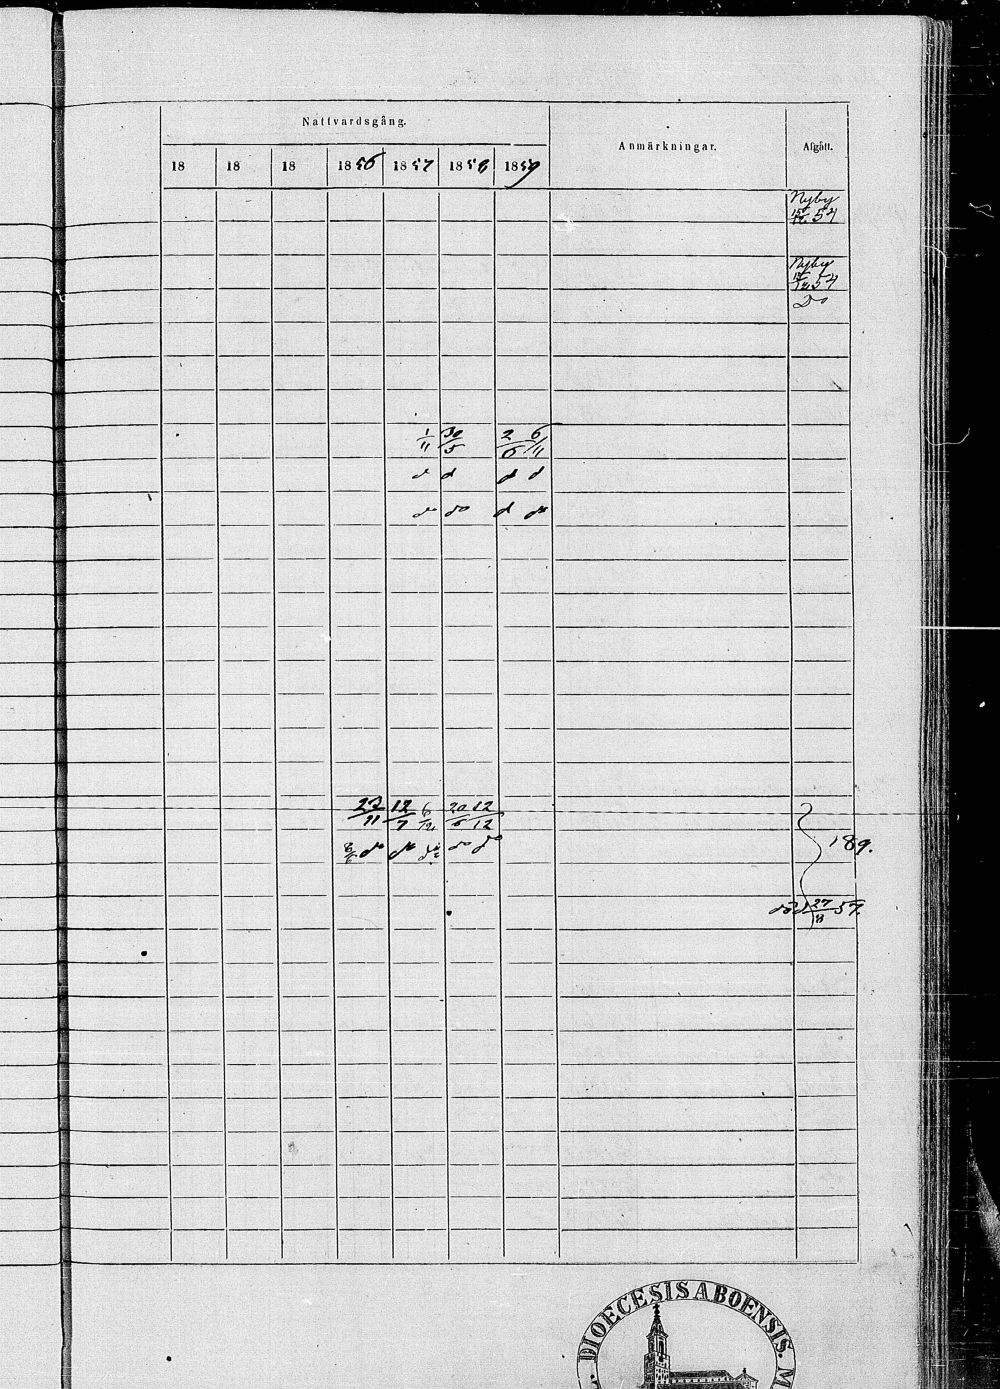 Nattvardsgång.
Anmärkningar. Afgått.
18 18 18 1856 1857 1858 1859
Nyby
15/12 57
Nyby
15/12 57
Do
1/11 30/5 2/6 6/11
d d d d
do do d do
23/11 12/7 6/12 20/6 12/12
do do do do
189.
död 27/8 57.
DIOECESIS ABOENSIS. M